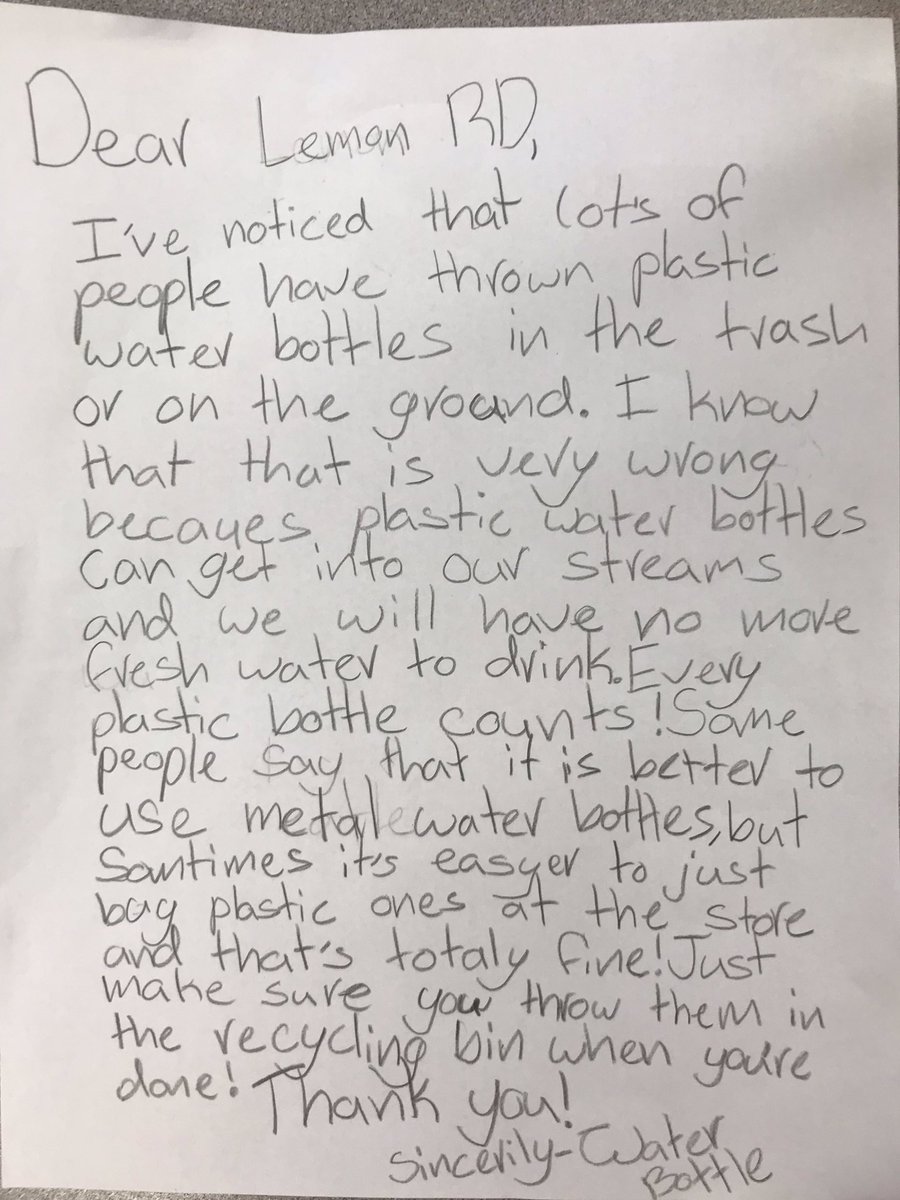 Dear Leman RD,
I've noticed that lot's of
people have thrown plastic
water bottles in the trash
or on the ground. I know
that that is very wrong
becaues plastic water bottles
can get into our streams
and we will have no more
fresh water to drink. Every
plastic bottle counts! Some
people say that it is better to
use metal water bottles, but
Somtimes it's easyer to just
buy plastic ones at the store
and that's totaly fine! Just
make sure you throw them in
the recycling bin when you're
done! Thank you!
Sincerily-Water
Bottle